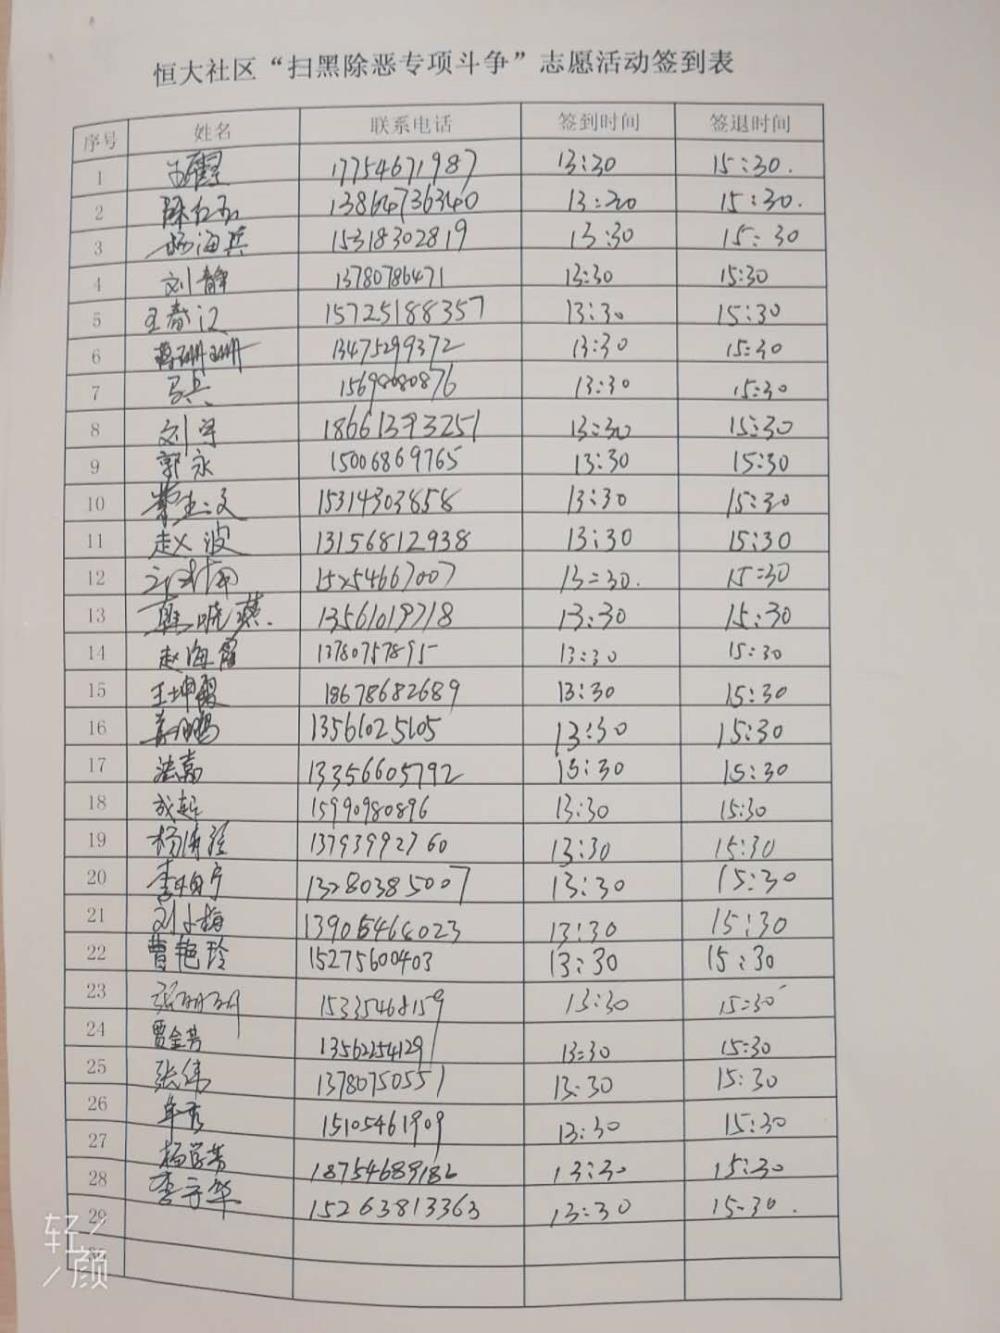 恒大社区“扫黑除恶专项斗争”志愿活动签到表
序号 姓名 联系电话 签到时间 签退时间
1 17754671987 13:30 15:30.
2 陈红 13864736340 13:30 15:30.
3 杨海兵 15318302819 13:30 15:30
4 刘静 13780786471 13:30 15:30
5 王春江 15725188357 13:30 15:30
6 曹珊珊 13475299372 13:30 15:30
7 马兵 13:30 15:30
8 刘宇 18661393251 13:30 15:30
9 郭永 15006869765 13:30 15:30
10 15314303858 13:30 15:30
11 赵波 13156812938 13:30 15:30
12 15254667007 13:30. 15:30
13 韩晓燕. 13561019718 13:30 15:30
14 赵海霞 13780757895 13:30 15:30
15 王坤霞 18678682689 13:30 15:30
16 姜鹏 13561025105 13:30 15:30
17 13356605792 13:30 15:30
18 成起 15990980896 13:30 15:30
19 杨海强 13793992760 13:30 15:30
20 李柏宁 13280385007 13:30 15:30
21 刘小梅 13905466023 13:30 15:30
22 曹艳玲 15275600403 13:30 15:30
23 张丽丽 15335468159 13:30 15:30
24 贾金芳 13562254129 13:30 15:30
25 张伟 13780750551 13:30 15:30
26 牟秀 15105461909 13:30 15:30
27 杨学芳 18754689182 13:30 15:30
28 李守华 15263813363 13:30 15:30.
29
轻颜